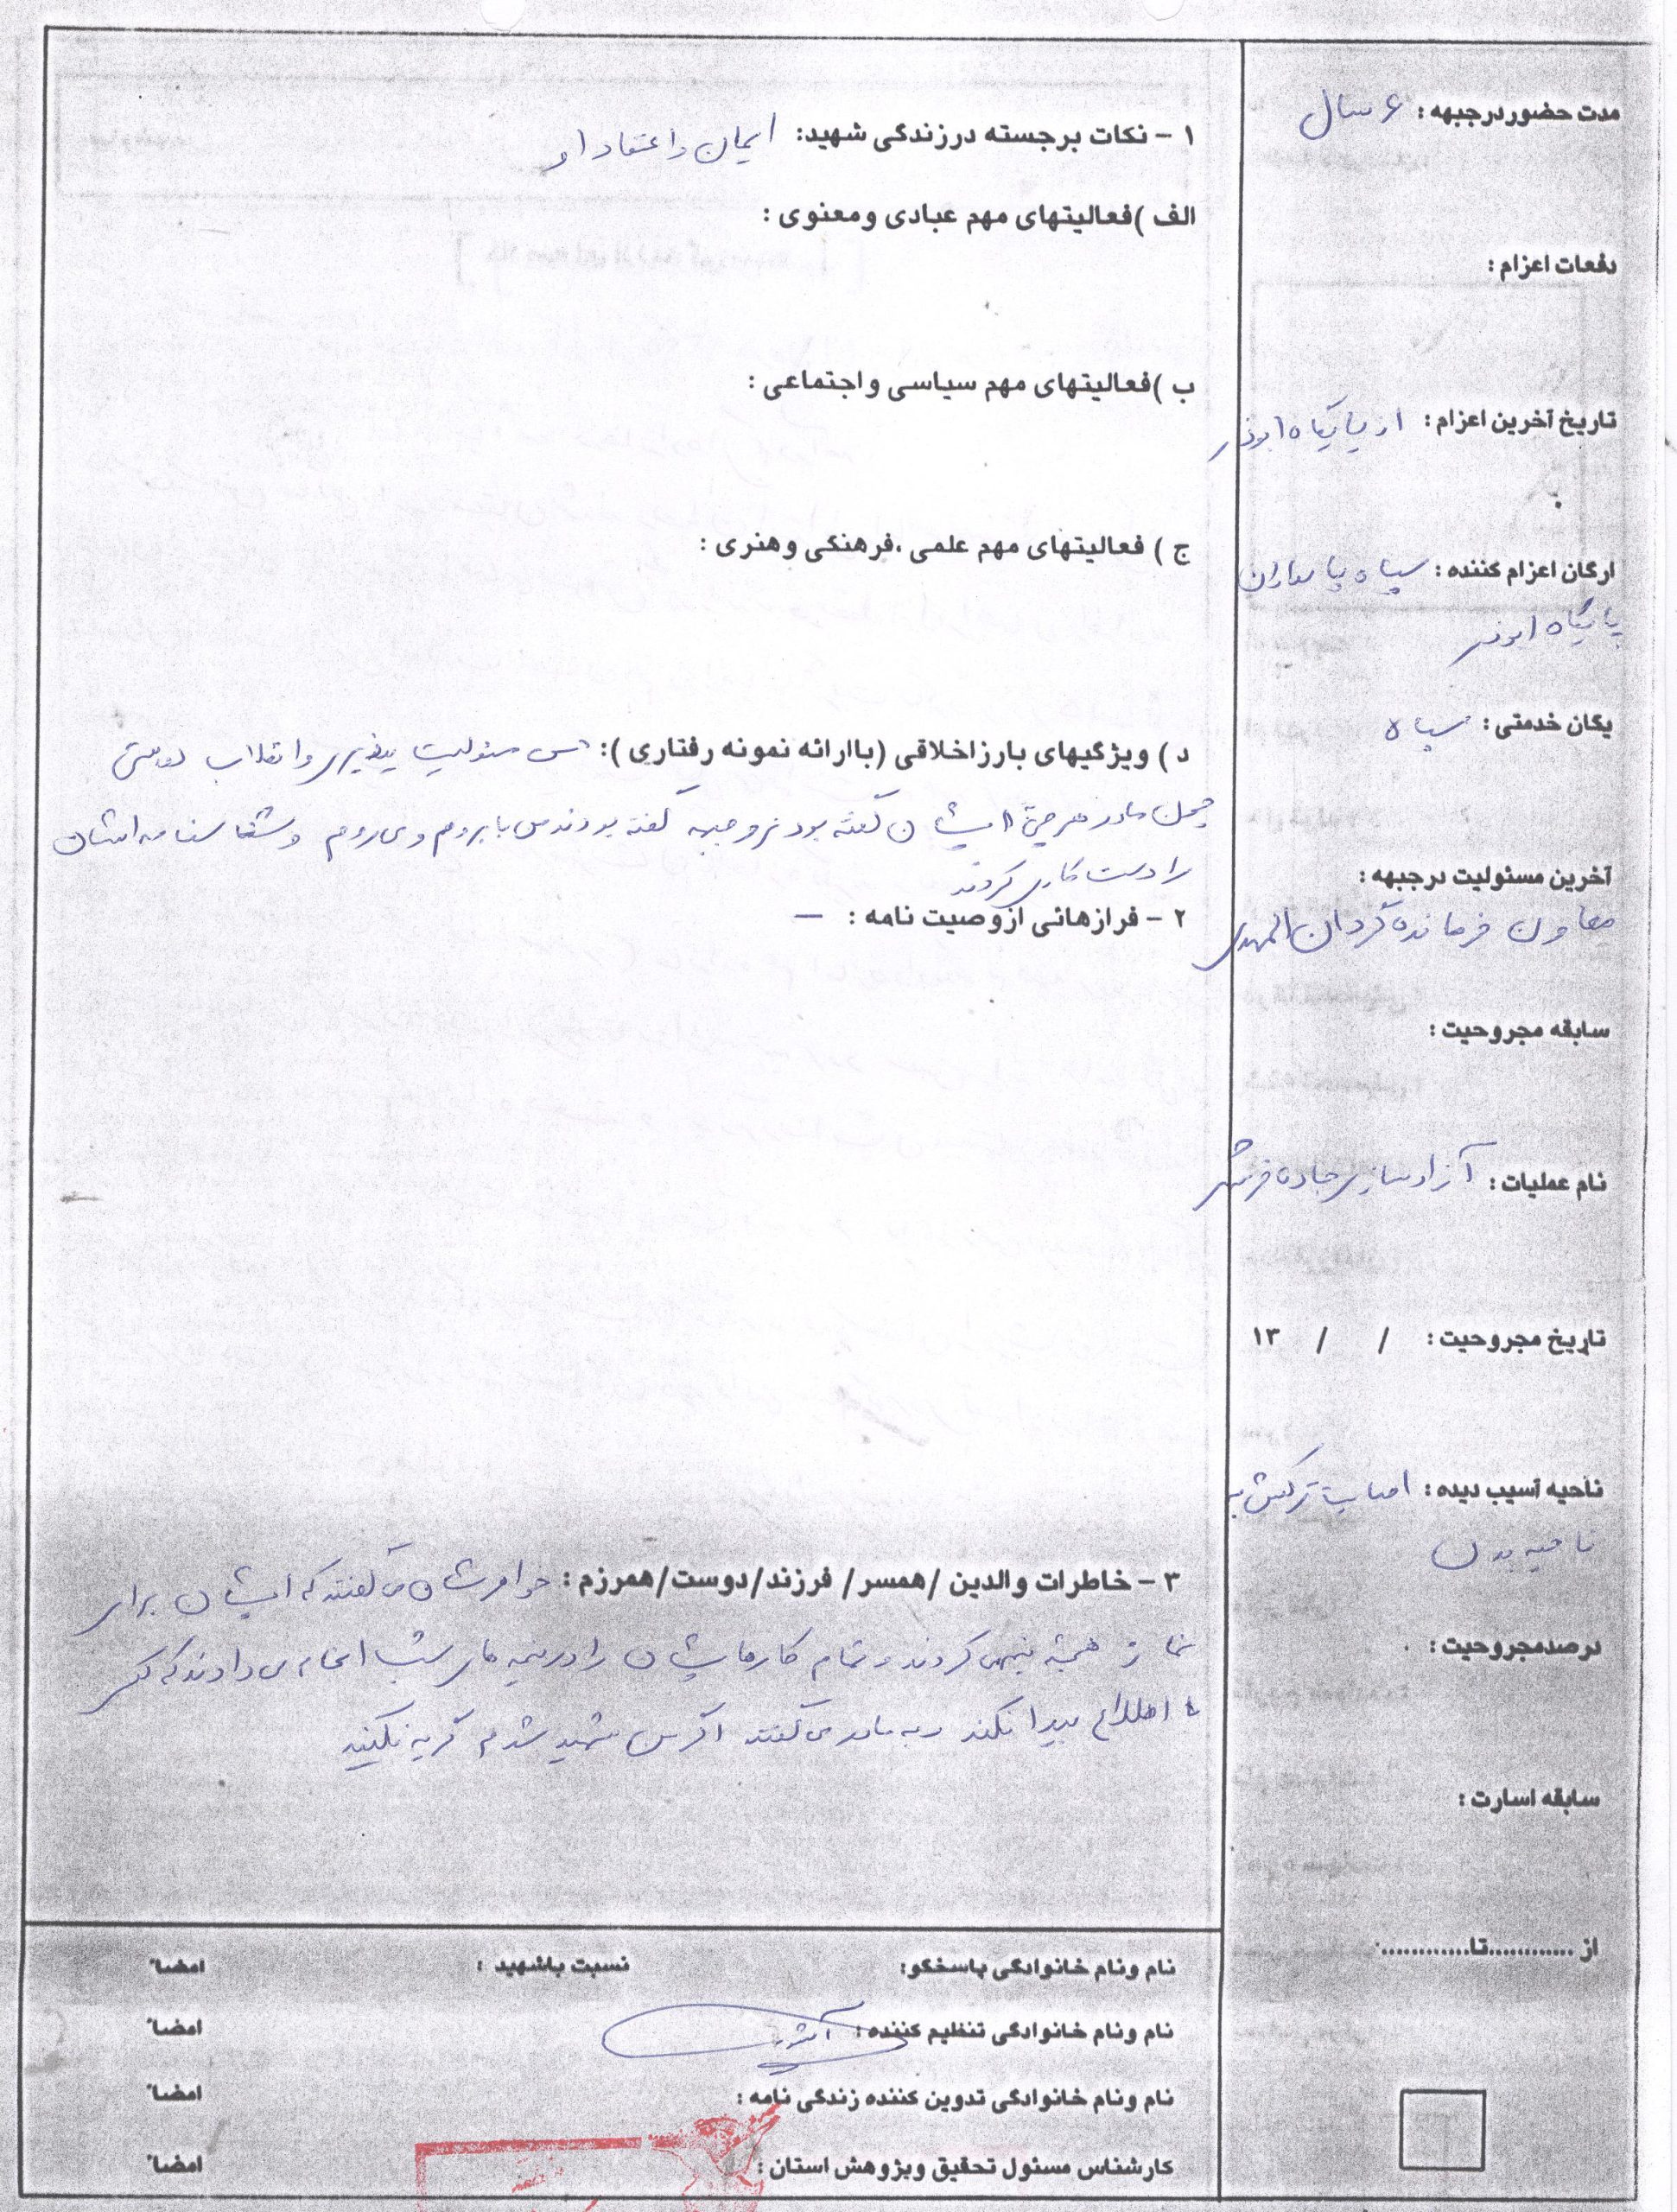 مدت حضور درجبهه : ۶ سال
دفعات اعزام :
تاریخ آخرین اعزام : از پایگاه ابوذر
ارگان اعزام کننده : سپاه پاسداران
پایگاه ابوذر
یگان خدمتی : سپاه
آخرین مسئولیت درجبهه :
معاون فرمانده گردان المهدی
سابقه مجروحیت :
نام عملیات : آزاد سازی جاده خرمشهر
تاریخ مجروحیت : / / ۱۳
ناحیه آسیب دیده : اصابت ترکش به
ناحیه بدن
درصدمجروحیت :
سابقه اسارت :
از ............تا............
۱ - نکات برجسته درزندگی شهید: ایمان و اعتقاد او
الف )فعالیتهای مهم عبادی ومعنوی :
ب )فعالیتهای مهم سیاسی واجتماعی :
ج ) فعالیتهای مهم علمی ،فرهنگی وهنری :
د ) ویژگیهای بارزاخلاقی (باارائه نمونه رفتاری ): حس مسئولیت پذیری و انقلاب دوستی
چون مادر هرچی ایشان گفته بود نرو جبهه گفته بودند من باید بروم و می روم و شناسنامه اشان
را دست کاری کردند
۲ - فرازهائی ازوصیت نامه : —
۳ - خاطرات والدین /همسر/ فرزند/دوست/همرزم : خواهرشان می گفتند که ایشان برای
نماز همیشه کردند و تمام کارهایشان را در نیمه های شب انجام می دادند که کسی
اطلاع پیدا نکند و به مادر می گفتند اگر من شهید شدم گریه نکنید
نام ونام خانوادگی پاسخگو: نسبت باشهید : امضاء
نام ونام خانوادگی تنظیم کننده : امضاء
نام ونام خانوادگی تدوین کننده زندگی نامه : امضاء
کارشناس مسئول تحقیق وپژوهش استان : امضاء